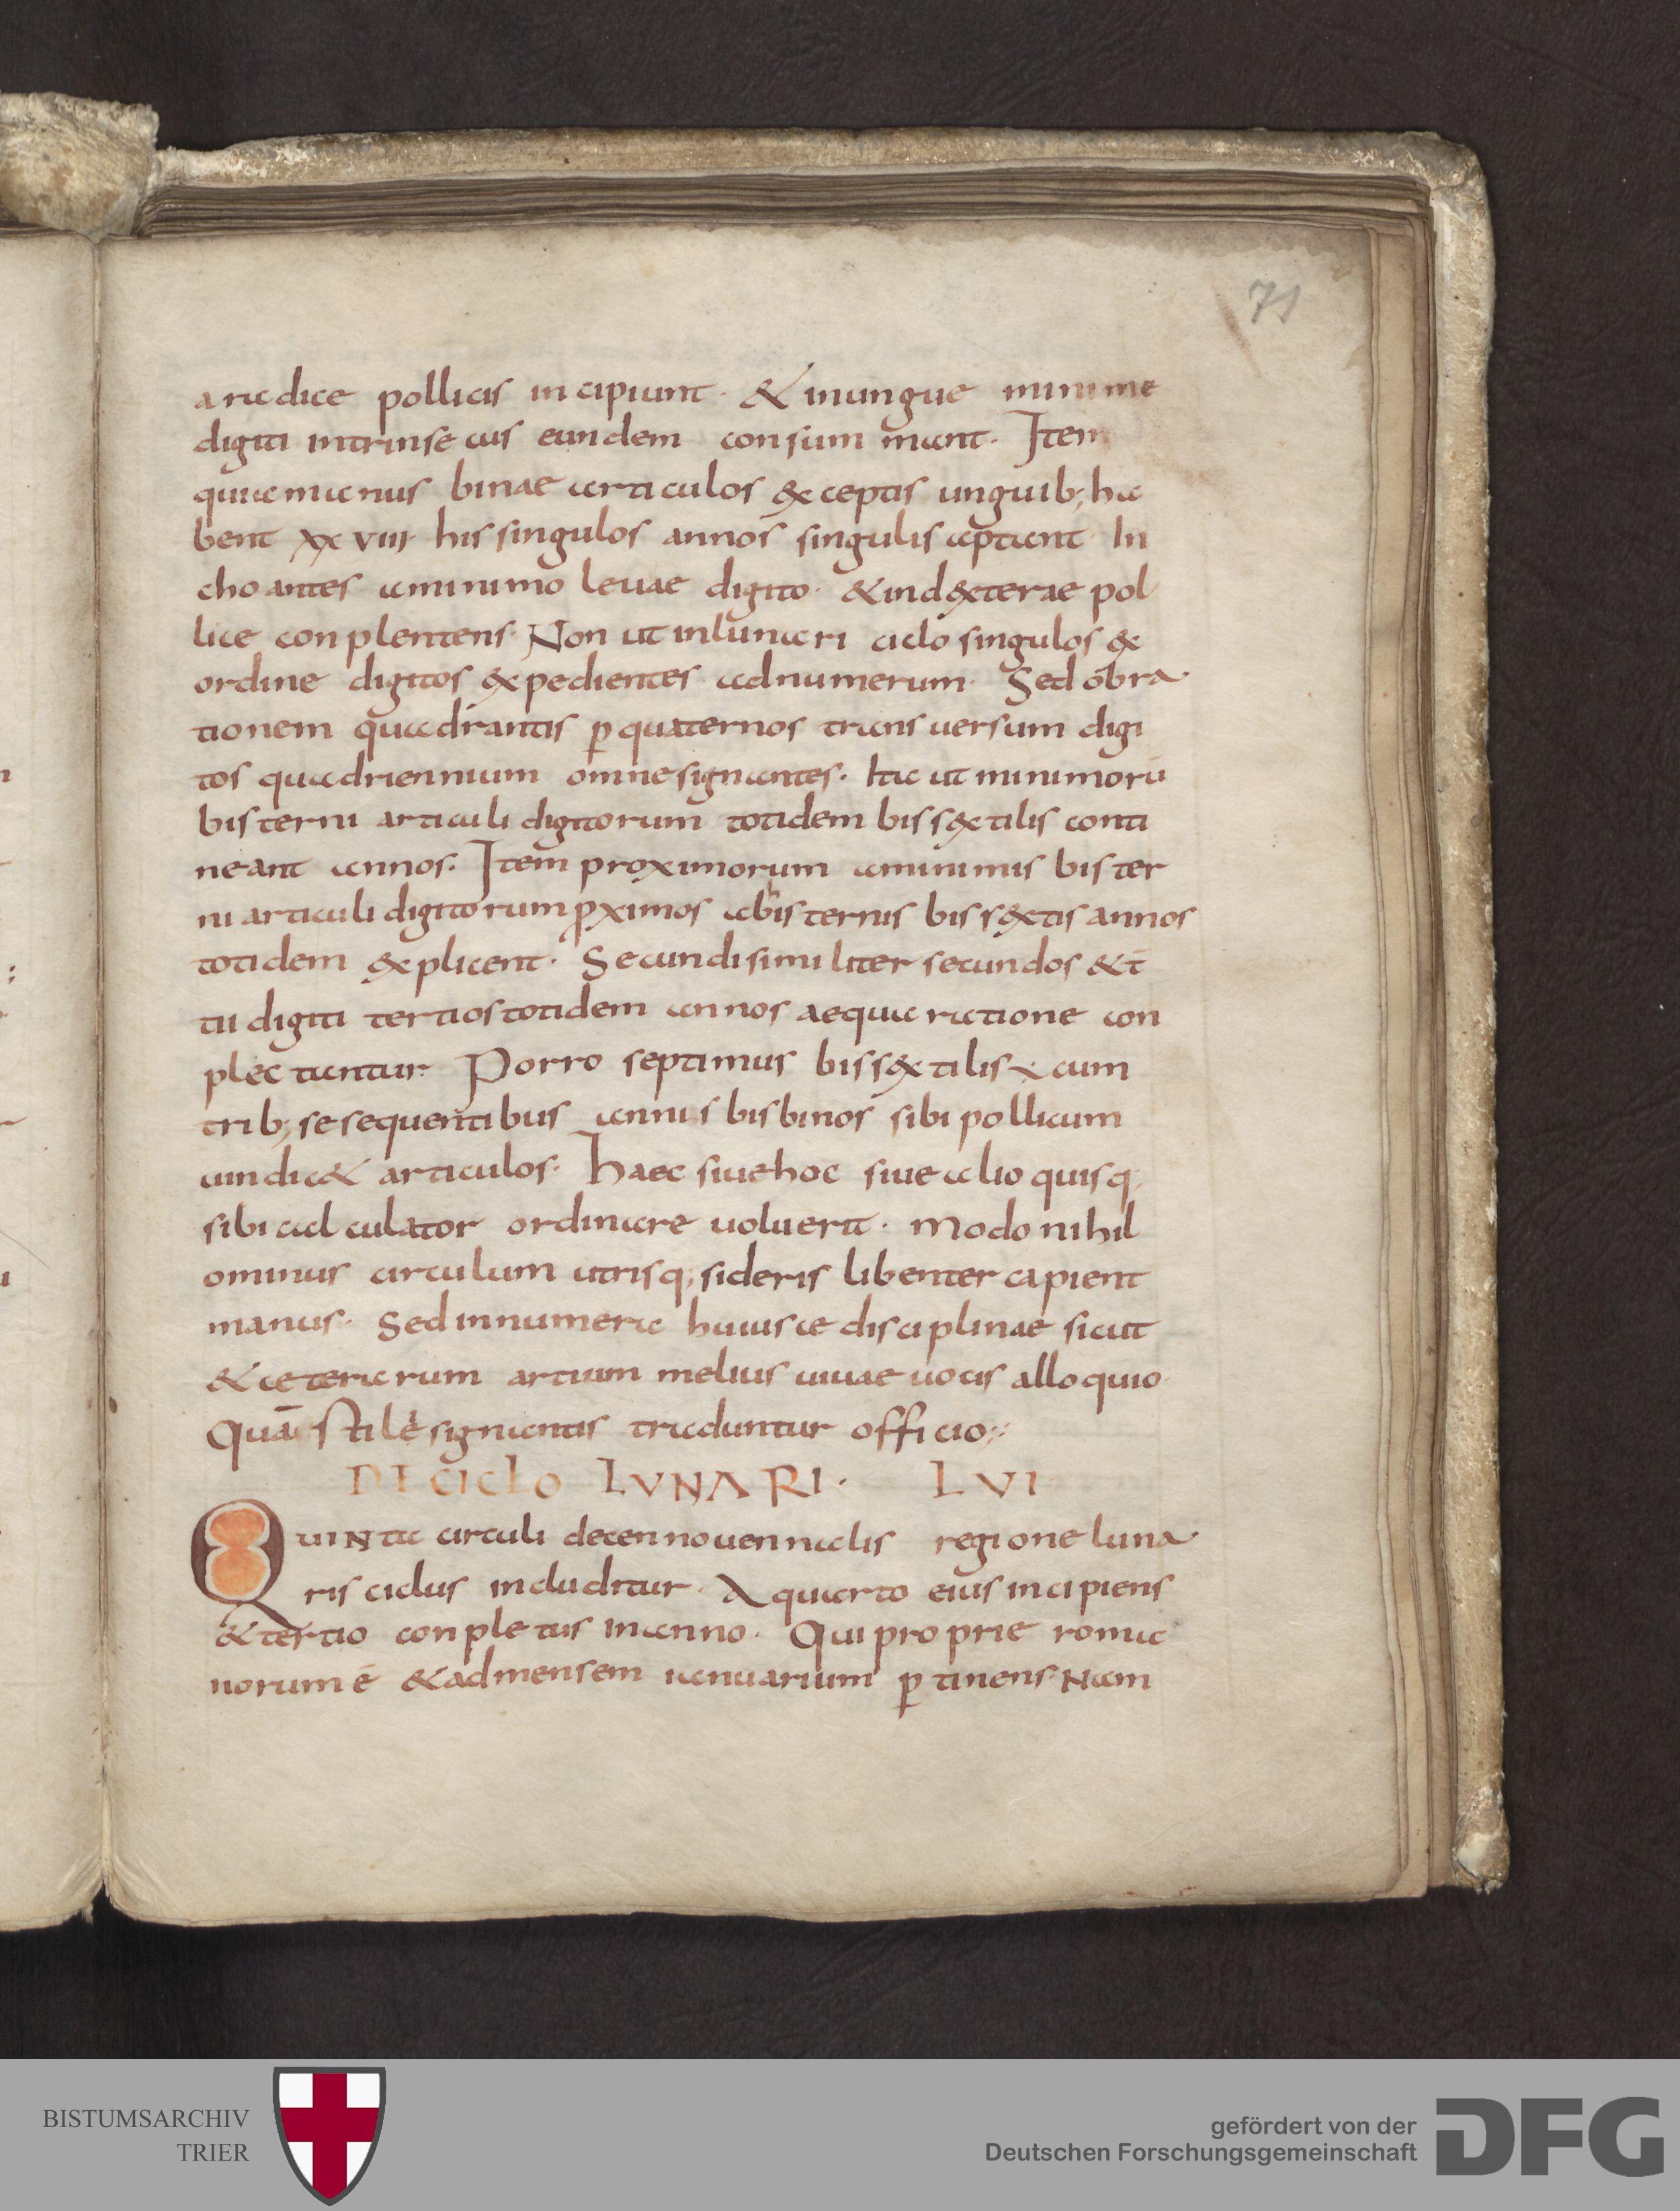 71
a radice pollicis incipiunt · & inungue minime
digiti intrinsecus eundem consummant · Item
quia manus binae articulos exceptis unguib; ha
bent xxviii · his singulos annos singulis aptant · In
choantes a minimo leuae digito · & in dexterae pol
lice conplentens · Non ut in lunari ciclo singulos ex
ordine digitos expedientes ad numerum · Sed ob ra
tionem quadrantis p quaternos transuersum digi
tos quadriennium omne signantes · Ita ut minimorū
bis terni articuli digitorum totidem bissextilis conti
neant annos · Item proximorum a minimis bis ter
ni articuli digitorum pximos a bis ternis bissextis annos
totidem explicent · Secundi similiter secundos & t̄
tii digiti tertios totidem annos aequa ratione con
plectantur · Porro septimus bissextilis cum
trib; se sequentibus annis bis binos sibi pollicum
uindic& articulos · Haec siue hoc siue alio quisq;
sibi calculator ordinare uoluerit · modo nihil
ominus circulum utrisq; sideris libenter capient
manus · Sed innumera huiusce disciplinae sicut
& ceterarum artium melius uiuae uocis alloquio ·
Quā stile signantis traduntur officio :
DE CICLO LUNARI · LVI
QUINta circuli decennouennalis regione luna
ris ciclus includitur · A quarto eius incipiens
& tertio conpletus in anno · Qui proprie roma
norum ē & ad mensem ianuarium p tinens · Nam
BISTUMSARCHIV
TRIER
gefördert von der
Deutschen Forschungsgemeinschaft
DFG